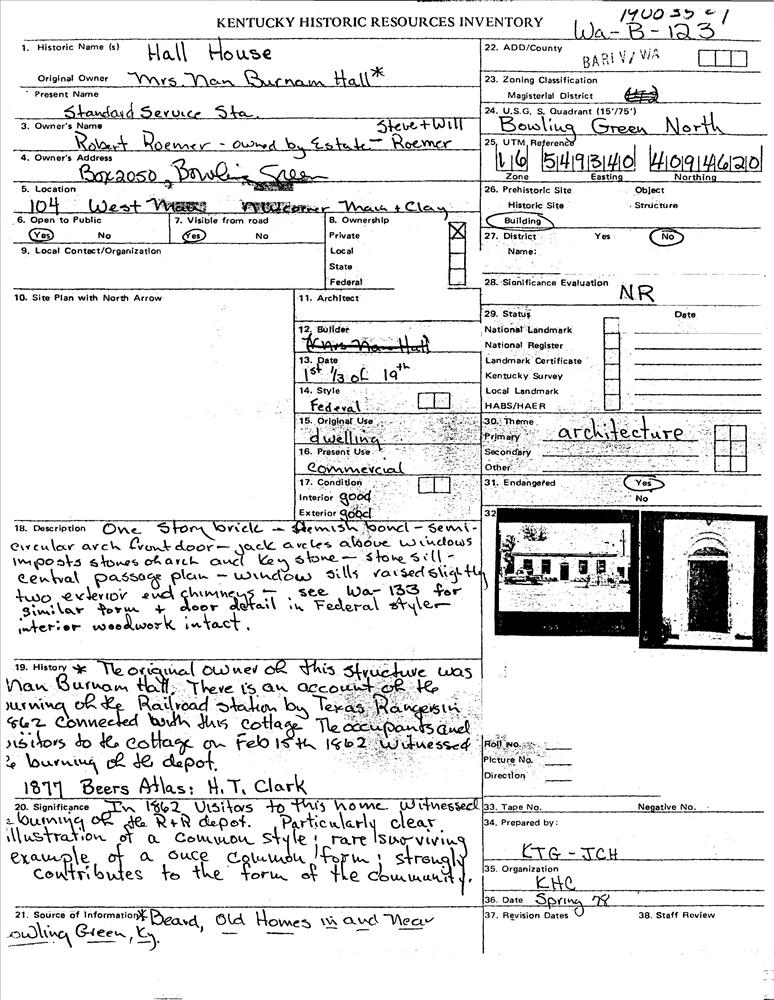 1400 35 c1
KENTUCKY HISTORIC RESOURCES INVENTORY
Wa-B-123
1. Historic Name (s) Hall House
Original Owner Mrs. Nan Burnam Hall*
Present Name
Standard Service Sta.
3. Owner's Name Steve + Will
Robert Roemer - owned by Estate - Roemer
4. Owner's Address
Box 2050, Bowling Green
5. Location
104 West Main corner Main + Clay
6. Open to Public
Yes No
7. Visible from road
Yes No
8. Ownership
Private X
Local
State
Federal
9. Local Contact/Organization
10. Site Plan with North Arrow
11. Architect
12. Builder
Mrs. Nan Hall
13. Date
1st 1/3 of 19th
14. Style
Federal
15. Original Use
dwelling
16. Present Use
Commercial
17. Condition
Interior good
Exterior good
18. Description One story brick - flemish bond - semi-
circular arch front door - jack arcles above windows
imposts stones of arch and key stone - stone sill -
central passage plan - window sills raised slightly
two exterior end chimneys - see Wa-133 for
similar form + door detail in Federal style -
interior woodwork intact.
19. History * The original owner of this structure was
Nan Burnam Hall. There is an account of the
urning of the Railroad station by Texas Rangers in
862 connected with this cottage The occupants and
isitors to the cottage on Feb 15th 1862 witnessed
e burning of the depot.
1877 Beers Atlas: H.T. Clark
20. Significance In 1862 visitors to this home witnessed
burning of the R+R depot. Particularly clear
illustration of a common style; rare surviving
example of a once common form; strongly
contributes to the form of the community.
21. Source of Information* Beard, Old Homes in and Near
owling Green, Ky.
22. ADD/County BARIV/WA
23. Zoning Classification
Magisterial District
24. U.S.G, S. Quadrant (15'/75')
Bowling Green North
25. UTM Reference
16 549340 4094620
Zone Easting Northing
26. Prehistoric Site Object
Historic Site Structure
Building
27. District Yes No
Name:
28. Significance Evaluation
NR
29. Status Date
National Landmark
National Register
Landmark Certificate
Kentucky Survey
Local Landmark
HABS/HAER
30. Theme
Primary architecture
Secondary
Other
31. Endangered Yes
No
32
Roll No.
Picture No.
Direction
33. Tape No. Negative No.
34. Prepared by:
KTG - JCH
35. Organization
KHC
36. Date Spring 78
37. Revision Dates 38. Staff Review